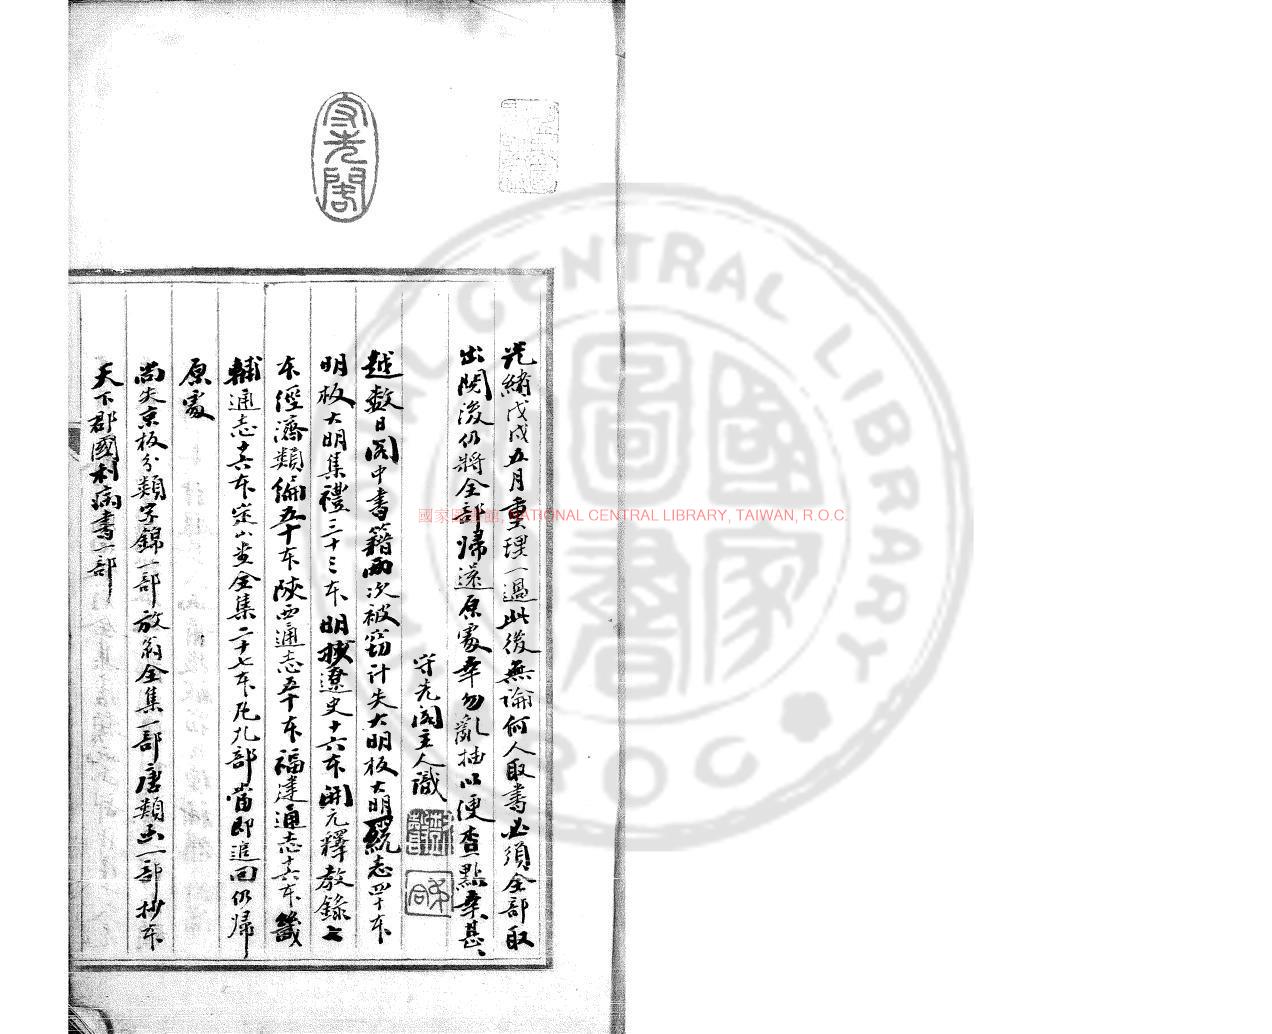 守先閣
光緒戊戌五月重理一過此後無論何人取書必須全部取
出閱後仍將全部歸還原處幸勿亂抽以便查點幸甚
守先閣主人識
越數日閣中書籍兩次被竊計失大明板大明一統志四十本
明板大明集禮三十三本 明板遼史十六本 開元釋教錄七
本 經濟類編五十本 陝西通志五十本 福建通志十六本 畿
輔通志十六本 全集二十七本 凡九部當即追回仍歸
原處
尚失京板分類字錦一部 放翁全集一部 唐類函一部 抄本
天下郡國利病書一部
國家圖書館, NATIONAL CENTRAL LIBRARY, TAIWAN, R.O.C.
NATIONAL CENTRAL LIBRARY
R.O.C.
國家圖書